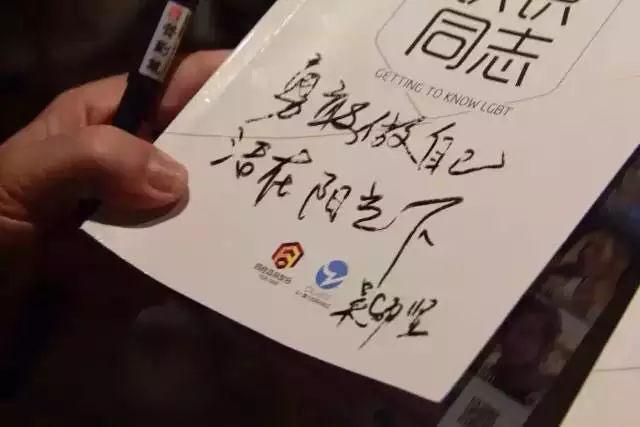 同志
GETTING TO KNOW LGBT
勇敢做自己
活在阳光下
吴幼坚